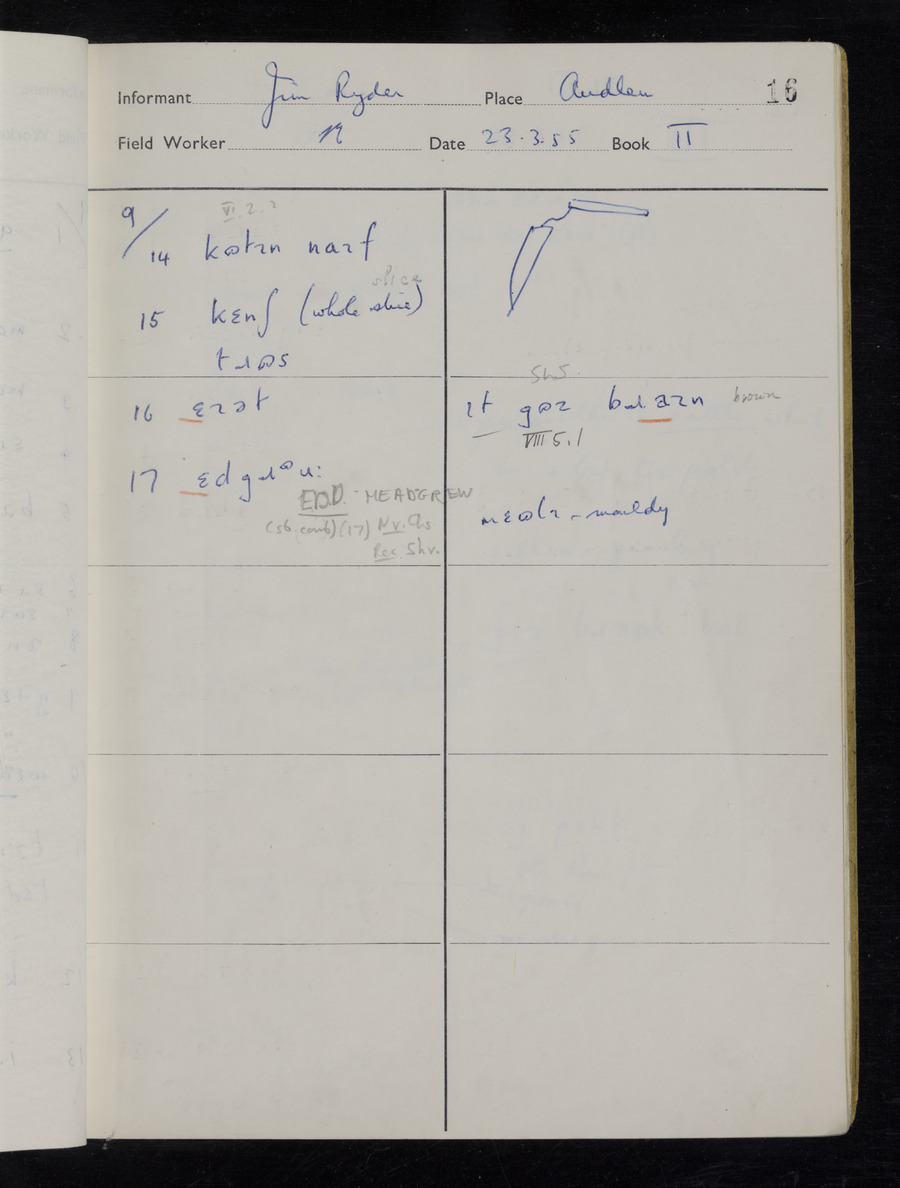 Informant Jim Ryder Place Audlem 16
Field Worker Date 23.3.55 Book II
9/ VI.2.2
14 kɷtɪn naɪf
slice
15 kɛnʃ (whole slice)
tɹɷs
16 ɛɪət
17 ɛdgɹɷu:
E.D.D. MEADGREW
(sb. comb) (17) Nv. Chs
Rec Shr.
ShS.
ɪt gɷz bɹaɪn brown
VIII 5.1
mouldy